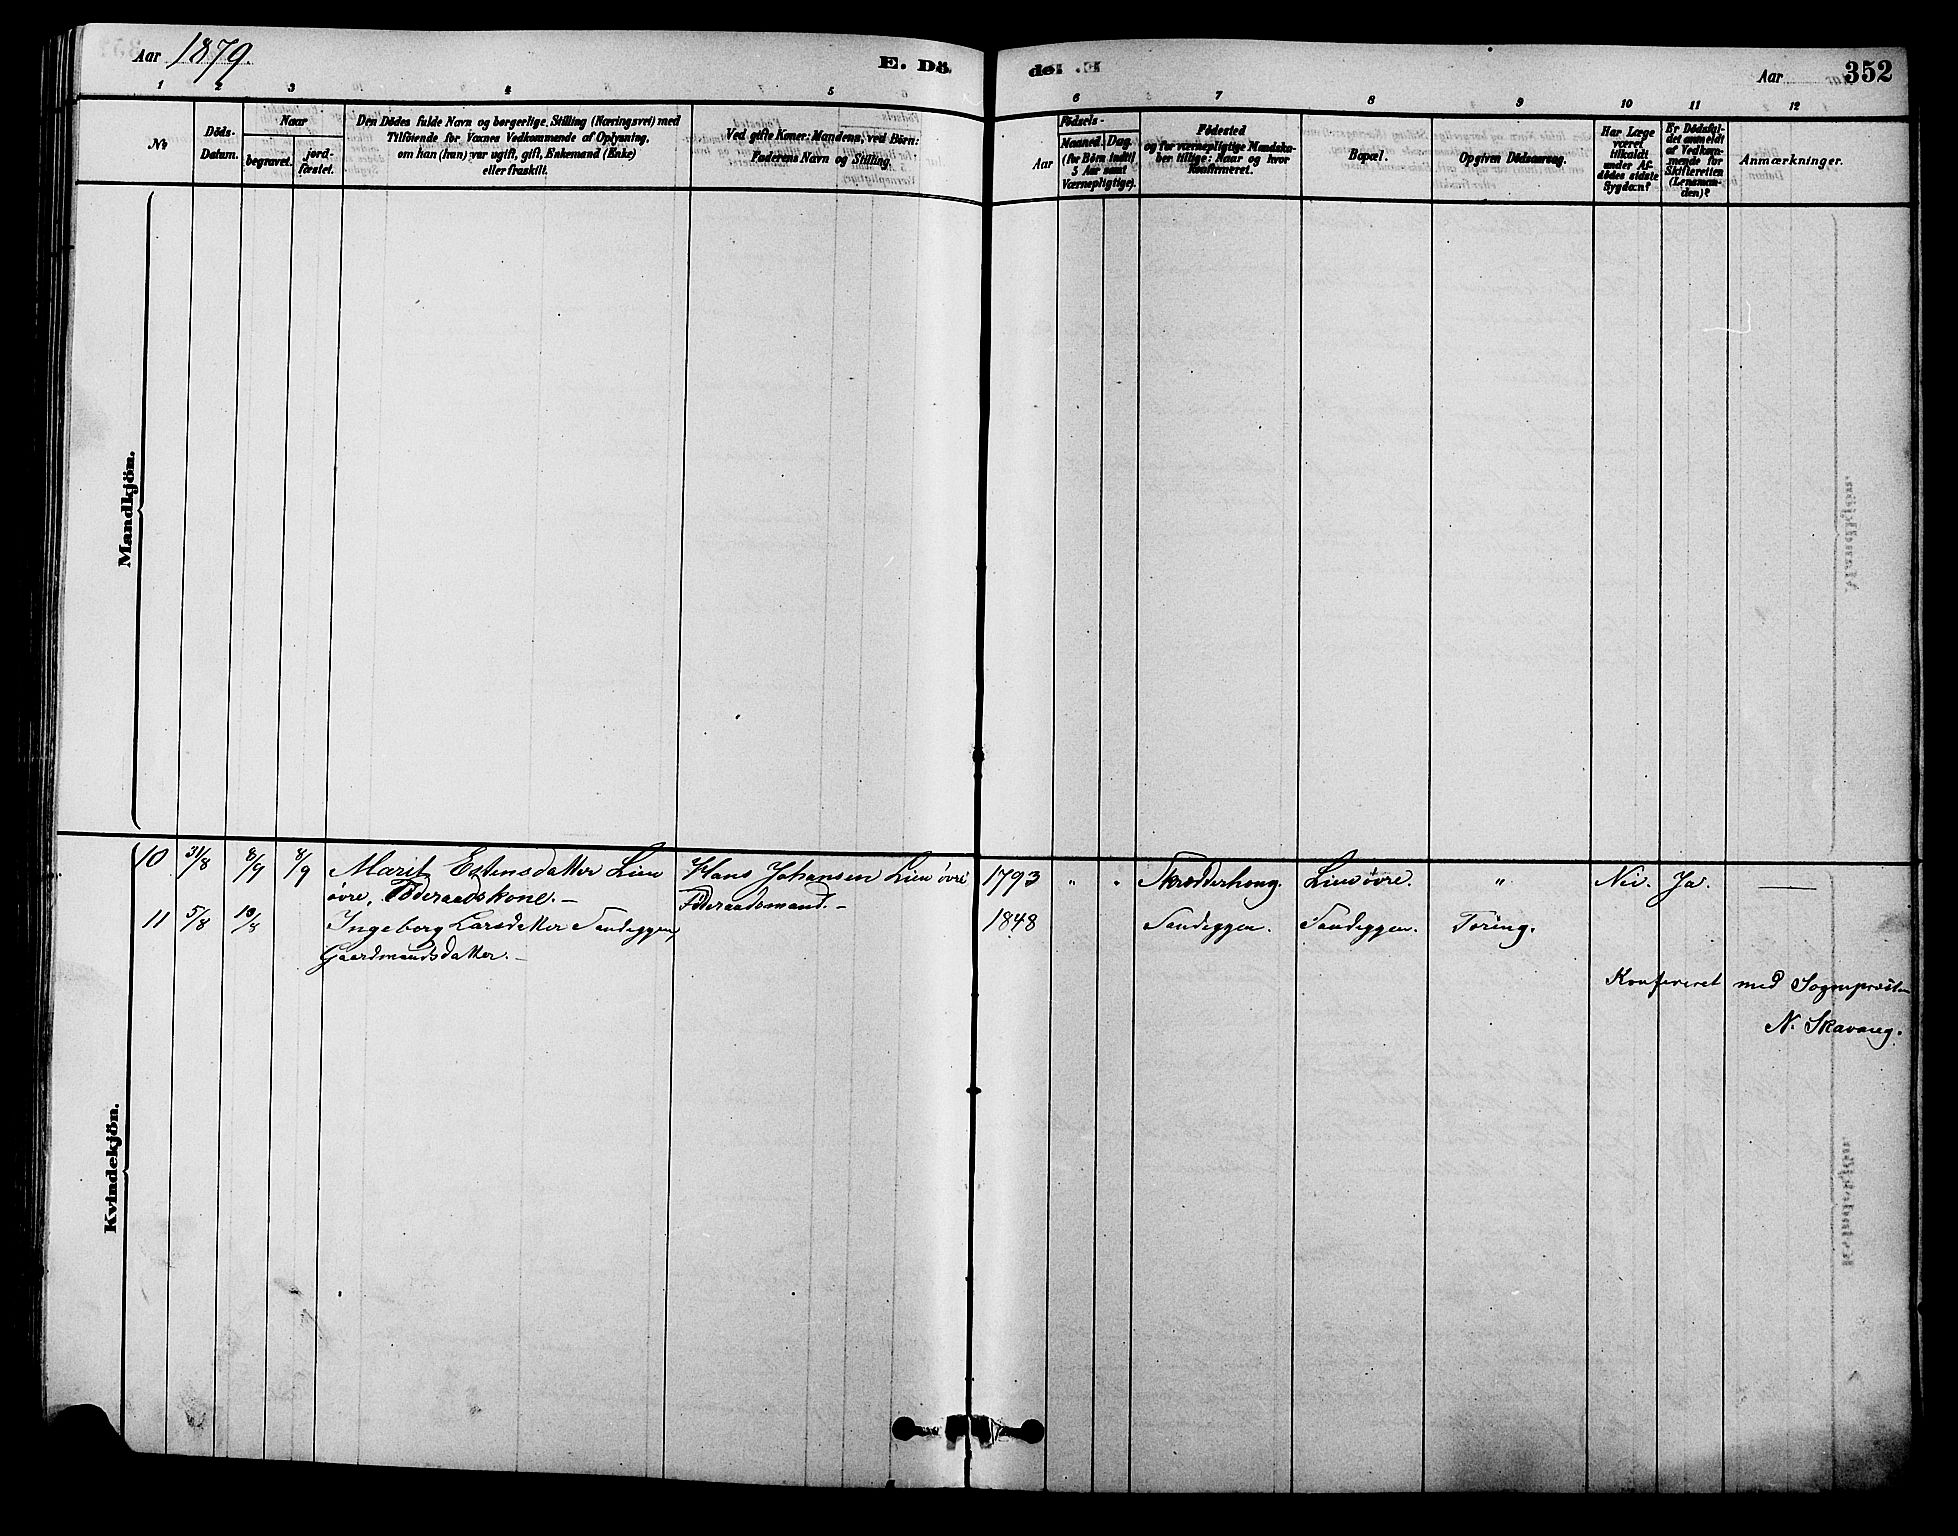 Aar 1879. E. Dö. Aar 352
1 2 3 4 5 6 7 8 9 10 11 12
No
Döds-Datum.
Naar
begravet.
jord-fæstet.
Den Dödes fulde Navn og borgerlige Stilling (Næringsvei) med
Tilföiende for Voxnes Vedkommende af Oplysning,
om han (hun) var ugift, gift, Enkemand (Enke)
eller fraskilt.
Ved gifte Koner: Mandens, ved Börn:
Faderens Navn og Stilling.
Födsels-
Aar
Maaned. Dag.
(for Börn indtil
5 Aar samt
Værnepligtige).
Födested
og for værnepligtige Mandska-
ber tillige: Naar og hvor
konfirmeret.
Bopæl.
Opgiven Dödsaarsag.
Har Læge
været
tilkaldt
under Af-
dödes sidste
Sygdom?
Er Dödsfal-
det anmeldt
af Vedkom-
mende for
Skifteretten
(Lensman-
den)?
Anmærkninger.
Mandkjön.
10 31/8 8/9 8/9 Marit Estensdatter Lien Hans Johansen Lien övre 1793 " " Skrædderhaug. Lien övre. " Nei. Ja. —
övre, Föderaadskone. — Föderaadsmand. —
11 5/8 10/8 Ingeborg Larsdatter Sandeggen, 1848 Sandeggen. Sandeggen. Tæring.
Gaardmandsdatter. —
Konfereret med Sognepræsten
N. Skavang.
Kvindekjön.